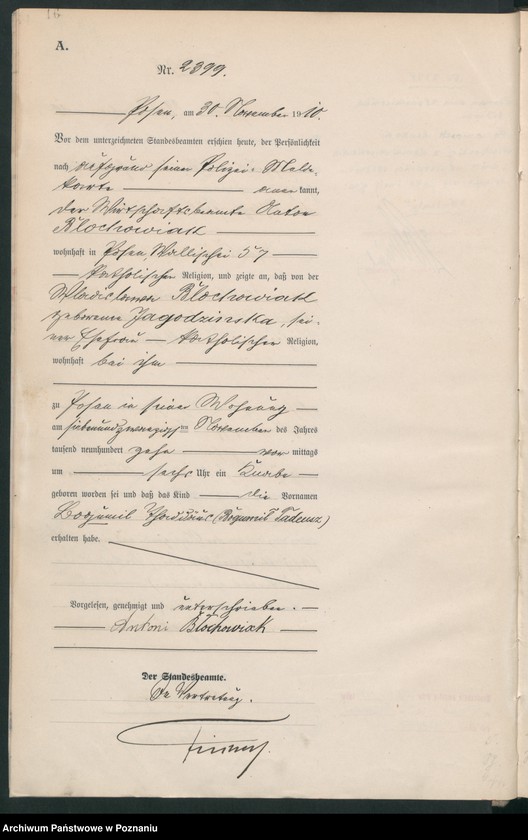 A.
Nr. 2399.
Posen, am 30. November 1910.
Vor dem unterzeichneten Standesbeamten erschien heute, der Persönlichkeit
nach aufgrund seiner Polizei-Melde-
karte anerkannt,
der Wirtschaftsbeamte Anton
Blochowiak
wohnhaft in Posen, Wallischei 57
katholischer Religion, und zeigte an, daß von der
Wladislawa Blochowiak
geborenen Jagodzinska, sei-
ner Ehefrau katholischer Religion,
wohnhaft bei ihm
zu Posen in seiner Wohnung
am siebenundzwanzigsten November des Jahres
tausend neunhundert zehn vormittags
um sechs Uhr ein Knabe
geboren worden sei und daß das Kind die Vornamen
Bogumil Thaddäus (Bogumił Tadeusz)
erhalten habe.
Vorgelesen, genehmigt und unterschrieben.
Antoni Błochowiak
Der Standesbeamte.
In Vertretung.
Archiwum Państwowe w Poznaniu